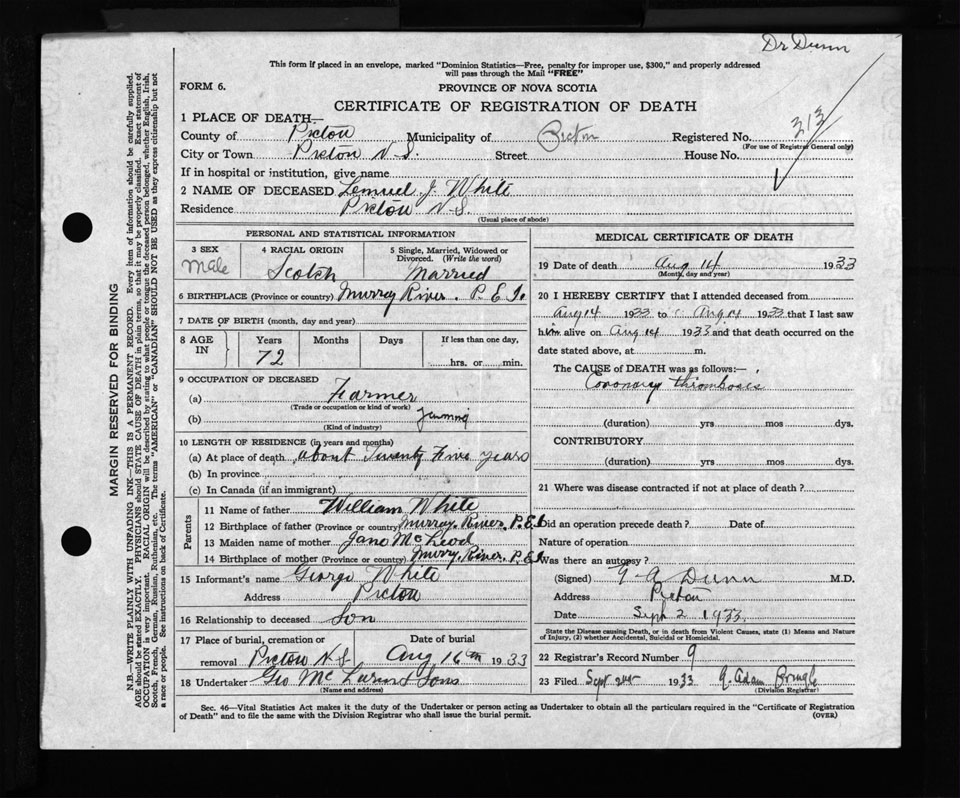 Dr Dunn
This form if placed in an envelope, marked "Dominion Statistics—Free, penalty for improper use, $300," and properly addressed
will pass through the Mail "FREE"
FORM 6.
PROVINCE OF NOVA SCOTIA
CERTIFICATE OF REGISTRATION OF DEATH
1 PLACE OF DEATH—
County of Pictou Municipality of Pictou Registered No. 313
(For use of Registrar General only)
City or Town Pictou N.S. Street House No.
If in hospital or institution, give name
2 NAME OF DECEASED Lemuel J. White
Residence Pictou N.S.
(Usual place of abode)
PERSONAL AND STATISTICAL INFORMATION
3 SEX Male
4 RACIAL ORIGIN Scotch
5 Single, Married, Widowed or Divorced. (Write the word) Married
6 BIRTHPLACE (Province or country) Murray River. P.E.I.
7 DATE OF BIRTH (month, day and year)
8 AGE IN Years 72 Months Days If less than one day, hrs. or min.
9 OCCUPATION OF DECEASED
(a) Farmer
(Trade or occupation or kind of work)
(b) Farming
(Kind of industry)
10 LENGTH OF RESIDENCE (in years and months)
(a) At place of death about Twenty Five years
(b) In province
(c) In Canada (if an immigrant)
Parents
11 Name of father William White
12 Birthplace of father (Province or country) Murray River P.E.I.
13 Maiden name of mother Jane McLeod
14 Birthplace of mother (Province or country) Murry River. P.E.I.
15 Informant's name George White
Address Pictou
16 Relationship to deceased Son
17 Place of burial, cremation or removal Pictou N.S. Date of burial Aug 16th 1933
18 Undertaker Geo McLaren & Sons
(Name and address)
MEDICAL CERTIFICATE OF DEATH
19 Date of death Aug 14 1933
(Month, day and year)
20 I HEREBY CERTIFY that I attended deceased from
Aug 14 1933 to Aug 14 1933 that I last saw
him alive on Aug 14 1933 and that death occurred on the
date stated above, at m.
The CAUSE of DEATH was as follows:—
Coronary thrombosis
(duration) yrs mos dys.
CONTRIBUTORY
(duration) yrs mos dys.
21 Where was disease contracted if not at place of death?
Did an operation precede death? Date of
Nature of operation
Was there an autopsy?
(Signed) G A Dunn M.D.
Address Pictou
Date Sept 2 1933.
State the Disease causing Death, or in death from Violent Causes, state (1) Means and Nature
of Injury, (2) whether Accidental, Suicidal or Homicidal.
22 Registrar's Record Number 9
23 Filed Sept 2nd 1933 Adam Pringle
(Division Registrar)
Sec. 46—Vital Statistics Act makes it the duty of the Undertaker or person acting as Undertaker to obtain all the particulars required in the "Certificate of Registration
of Death" and to file the same with the Division Registrar who shall issue the burial permit.
(OVER)
MARGIN RESERVED FOR BINDING
N.B.—WRITE PLAINLY WITH UNFADING INK—THIS IS A PERMANENT RECORD. Every item of information should be carefully supplied.
AGE should be stated EXACTLY. PHYSICIANS should STATE CAUSE OF DEATH in plain terms, so that it may be properly classified. Exact statement of
OCCUPATION is very important. RACIAL ORIGIN will be described by stating to what people or tongue the deceased person belonged, whether English, Irish,
Scotch, French, German, Russian, Ruthenian, etc. The terms "AMERICAN" or "CANADIAN" SHOULD NOT BE USED as they express citizenship but not
a race or people. See instructions on back of Certificate.